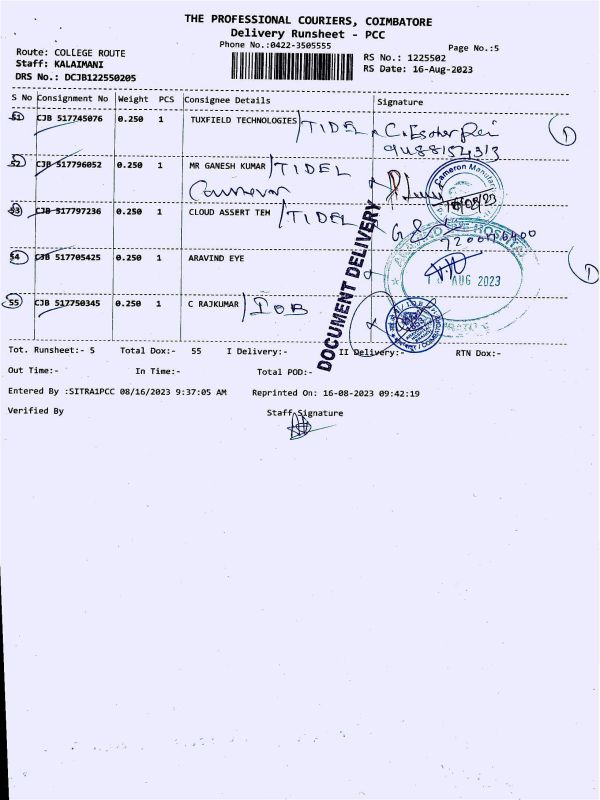 THE PROFESSIONAL COURIERS, COIMBATORE
Delivery Runsheet - PCC
Phone No.:0422-3505555
Page No.:5
Route: COLLEGE ROUTE
Staff: KALAIMANI
DRS No.: DCJB122550205
RS No.: 1225502
RS Date: 16-Aug-2023
S No Consignment No Weight PCS Consignee Details Signature
51 CJB 517745076 0.250 1 TUXFIELD TECHNOLOGIES /TIDEL
52 CJB 517796052 0.250 1 MR GANESH KUMAR /TIDEL
Cameron Manufac
53 CJB 517797236 0.250 1 CLOUD ASSERT TEH /TIDEL
16/08/23
54 CJB 517705425 0.250 1 ARAVIND EYE
AUG 2023
55 CJB 517750345 0.250 1 C RAJKUMAR /IOB
DOCUMENT DELIVERY
Tot. Runsheet:- 5 Total Dox:- 55 I Delivery:- II Delivery:- RTN Dox:-
Out Time:- In Time:- Total POD:-
Entered By :SITRA1PCC 08/16/2023 9:37:05 AM Reprinted On: 16-08-2023 09:42:19
Verified By Staff Signature